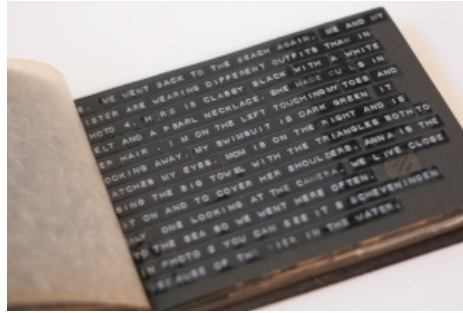 WE WENT BACK TO THE BEACH AGAIN. ME AND MY
SISTER ARE WEARING DIFFERENT OUTFITS THAN IN
PHOTO 4. HERS IS CLASSY BLACK WITH A WHITE
BELT AND A PEARL NECKLACE. SHE MADE CURLS IN
HER HAIR. I'M ON THE LEFT TOUCHING MY TOES AND
LOOKING AWAY. MY SWIMSUIT IS DARK GREEN. IT
MATCHES MY EYES. MOM IS ON THE RIGHT AND IS
USING THE BIG TOWEL WITH THE TRIANGLES BOTH TO
SIT ON AND TO COVER HER SHOULDERS. ANNA IS THE
ONLY ONE LOOKING AT THE CAMERA. WE LIVE CLOSE
TO THE SEA SO WE WENT HERE OFTEN.
IN PHOTO 8 YOU CAN SEE IT'S SCHEVENINGEN
BECAUSE OF THE PIER IN THE WATER.